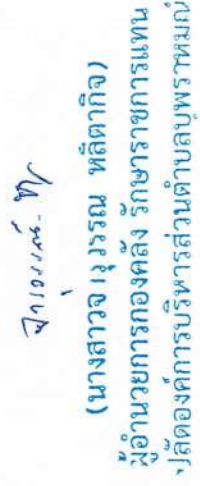 จารุวรรณ
(นางสาวจารุวรรณ หลีตากิจ)
ผู้อำนวยการกองคลัง รักษาราชการแทน
ปลัดองค์การบริหารส่วนตำบลบุพราหมณ์